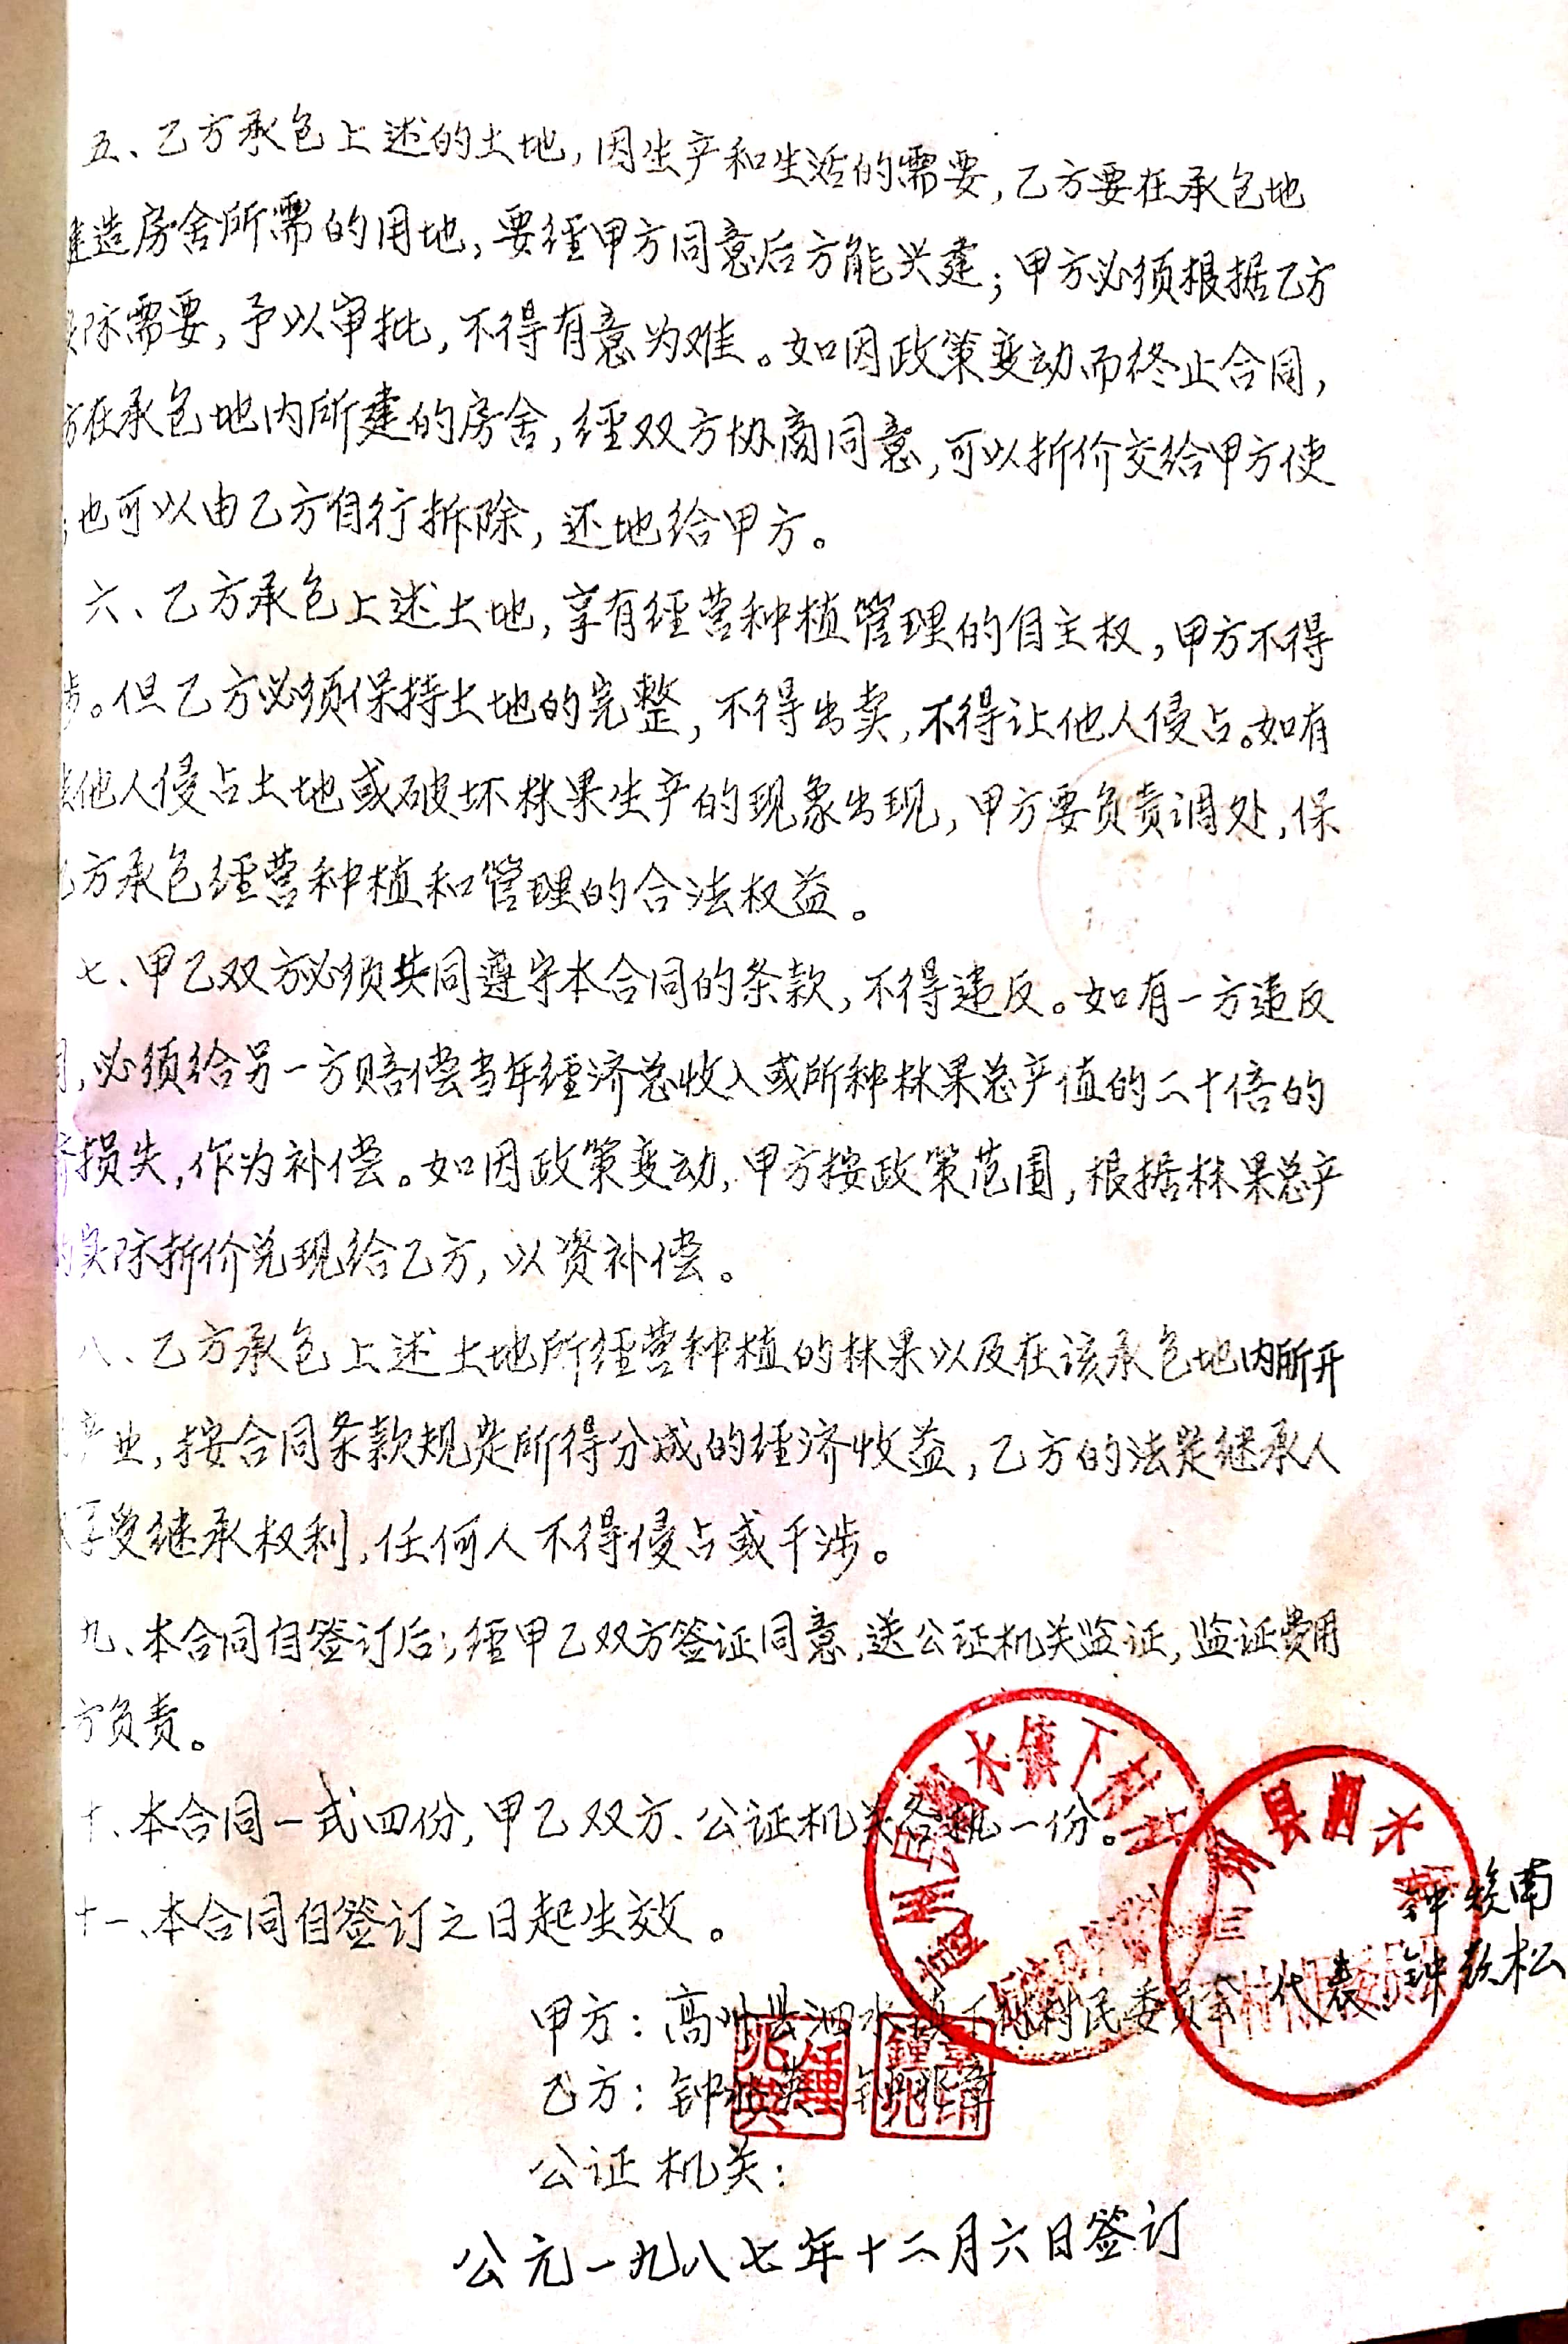 五、乙方承包上述的土地,因生产和生活的需要,乙方要在承包地
建造房舍所需的用地,要经甲方同意后方能兴建;甲方必须根据乙方
实际需要,予以审批,不得有意为难。如因政策变动而终止合同,
方在承包地内所建的房舍,经双方协商同意,可以折价交给甲方使
;也可以由乙方自行拆除,还地给甲方。
六、乙方承包上述土地,享有经营种植管理的自主权,甲方不得
涉。但乙方必须保持土地的完整,不得出卖,不得让他人侵占。如有
他人侵占土地或破坏林果生产的现象出现,甲方要负责调处,保
乙方承包经营种植和管理的合法权益。
七、甲乙双方必须共同遵守本合同的条款,不得违反。如有一方违反
,必须给另一方赔偿当年经济总收入或所种林果总产值的二十倍的
损失,作为补偿。如因政策变动,甲方按政策范围,根据林果总产
的实际折价兑现给乙方,以资补偿。
八、乙方承包上述土地所经营种植的林果以及在该承包地内所开
产业,按合同条款规定所得分成的经济收益,乙方的法定继承人
享受继承权利,任何人不得侵占或干涉。
九、本合同自签订后;经甲乙双方签证同意,送公证机关监证,监证费用
方负责。
十、本合同一式四份,甲乙双方、公证机关各执一份。
十一、本合同自签订之日起生效。
甲方:高州县泗水镇下村村民委员会 代表 钟 南
钟 松
乙方:钟兆英 钟兆章
公证机关:
公元一九八七年十二月六日签订